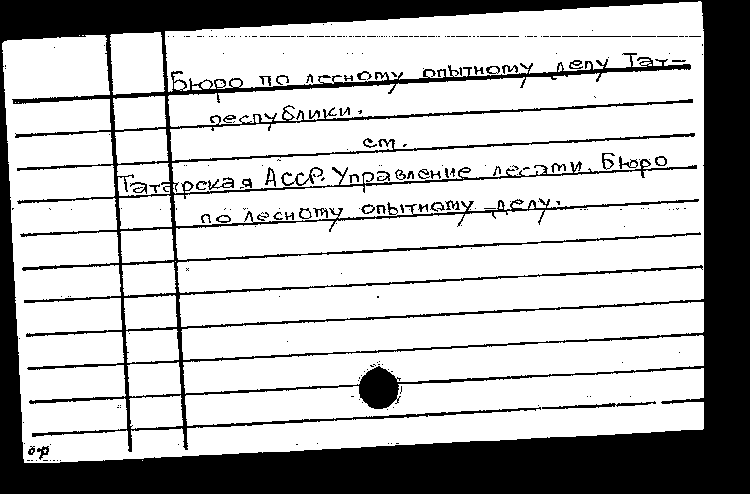 Бюро по лесному опытному делу Тат-
республики.
см.
Татарская АССР. Управление лесами. Бюро
по лесному опытному делу.